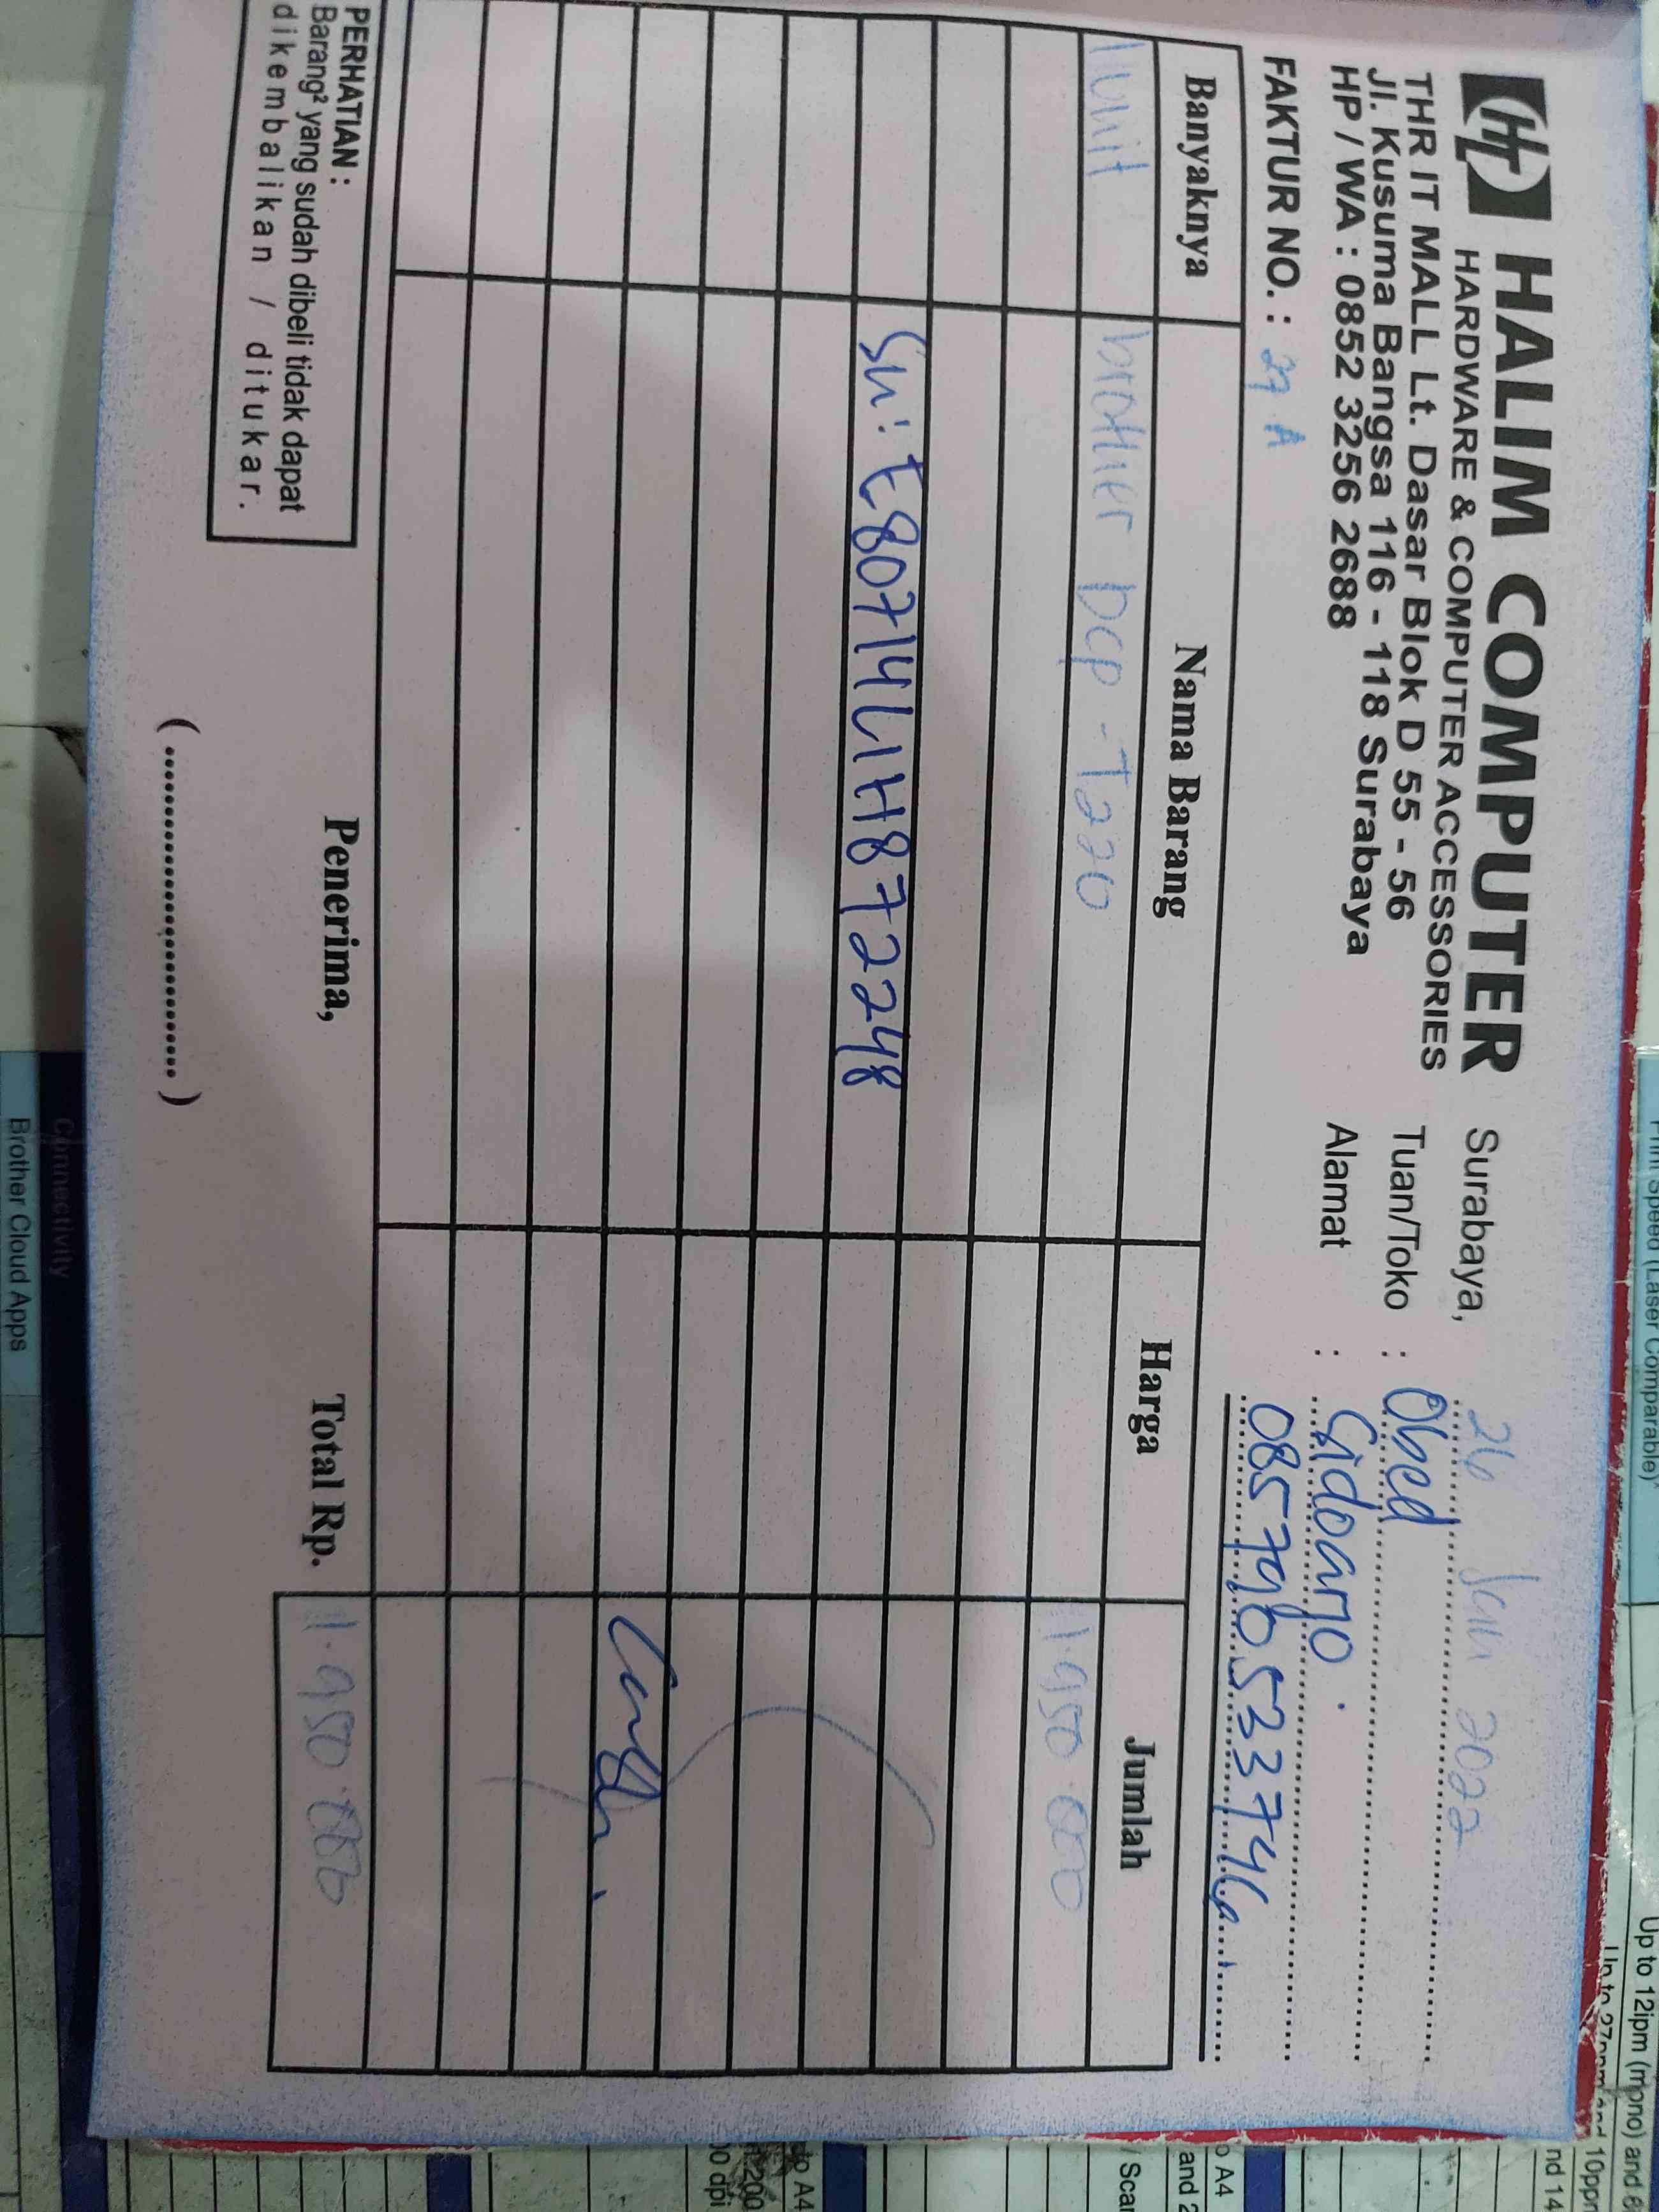 HALIM COMPUTER
HARDWARE & COMPUTER ACCESSORIES
THR IT MALL Lt. Dasar Blok D 55 - 56
Jl. Kusuma Bangsa 116 - 118 Surabaya
HP / WA : 0852 3256 2688
Surabaya, 26 Jan 2022
Tuan/Toko : Obed
Alamat : Sidoarjo.
085790533746
FAKTUR NO. : 27 A
Banyaknya Nama Barang Harga Jumlah
1 unit brother DCP - T220 1.950.000
Sn: E80714L1H872248
Total Rp. 1.950.000
Penerima,
(..............................)
PERHATIAN :
Barang² yang sudah dibeli tidak dapat
dikembalikan / ditukar.
Print Speed (Laser Comparable)
Up to 12ipm (mono) and
Connectivity
Brother Cloud Apps